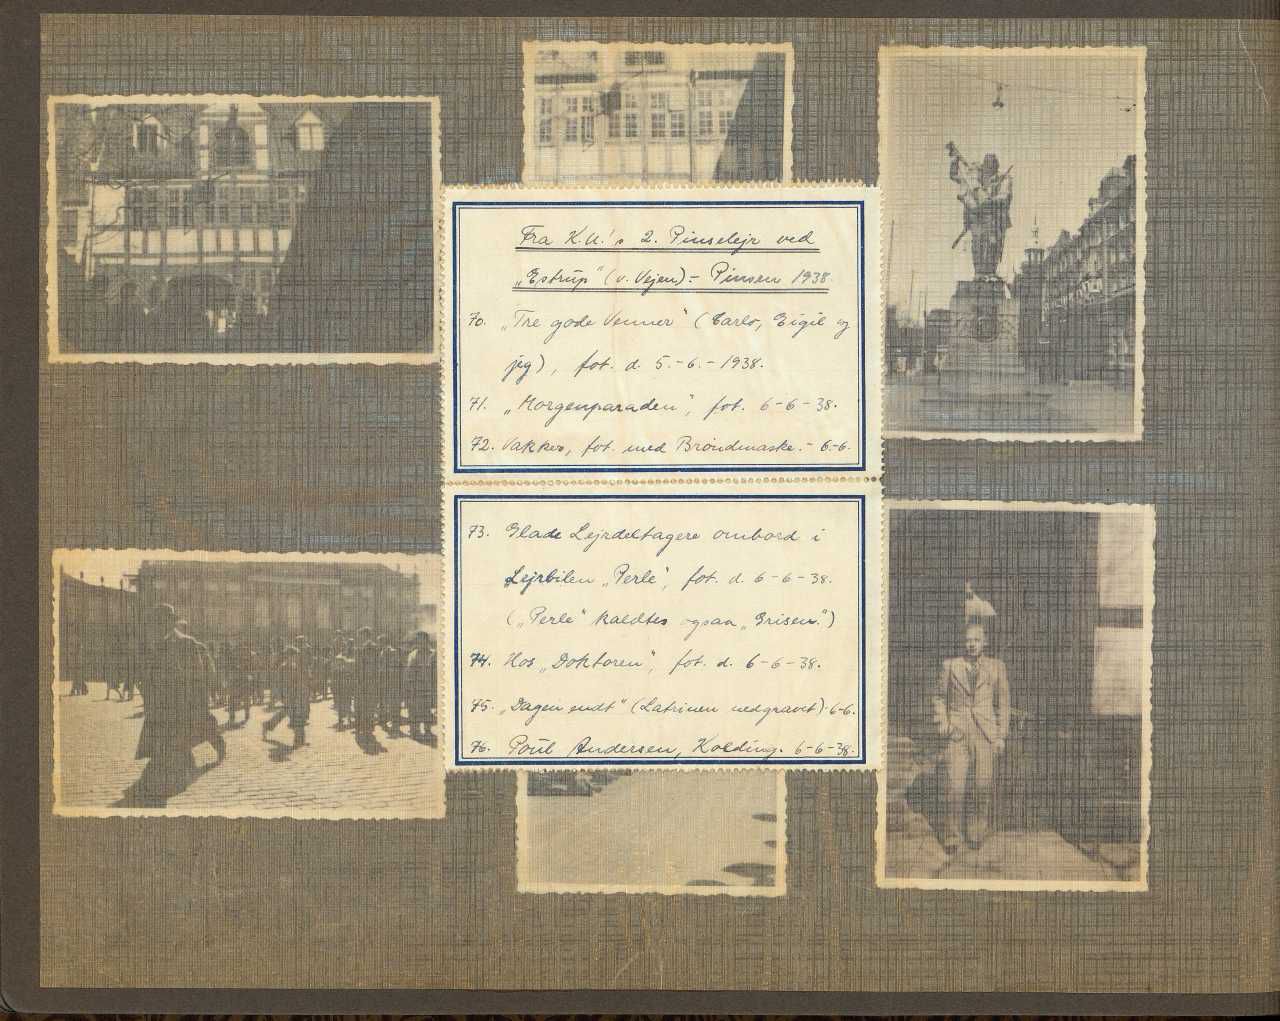 Fra K.U.'s 2. Pinselejr ved
"Estrup" (v. Vejen).- Pinsen 1938.
70. "Tre gode Venner" (Carlo, Eigil og
jeg), fot. d. 5.-6.-1938.
71. "Morgenparaden", fot. 6-6-38.
72. Vakker, fot. med Brøndmaske.- 6.-6.
73. Glade Lejrdeltagere ombord i
Lejrbilen "Perle", fot. d. 6-6-38.
("Perle" kaldtes ogsaa "Grisen.")
74. Hos "Doktoren", fot. d. 6-6-38.
75. "Dagen endt" (Latrinen nedgravet). 6-6.
76. Poul Andersen, Kolding. 6-6-38.